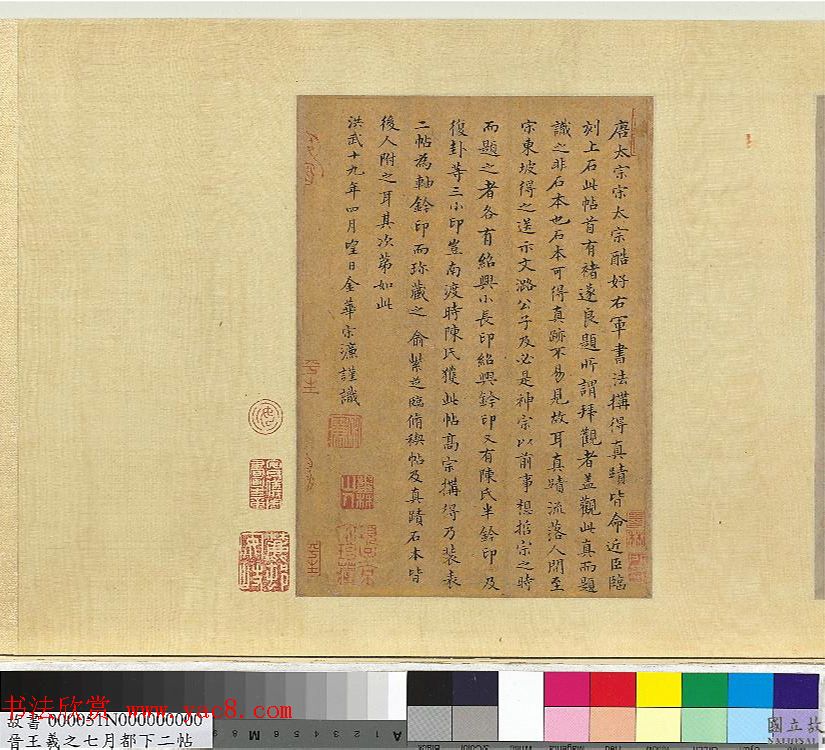 唐太宗宋太宗酷好右軍書法搆得真蹟皆命近臣臨
刻上石此帖首有褚遂良題所謂拜觀者盖觀此真而題
識之非石本也石本可得真跡不易見故耳真蹟流落人間至
宗東坡得之送示文潞公子及必是神宗以前事想哲宗之時
而題之者各有紹興小長印紹興鈐印又有陳氏半鈐印及
復卦等三小印豈南渡時陳氏獲此帖高宗搆得乃裝表
二帖為軸鈐印而珍藏之俞紫芝臨脩禊帖及真蹟石本皆
後人附之耳其次第如此
洪武十九年四月望日金華宗濂謹識
书法欣赏 www.yac8.com
故書 000051N000000000
晉王羲之七月都下二帖
國立故
NATIONAL
M 8 9
A
Black
3/Color
White
Magenta
Red
Yellow
Green
Cyan